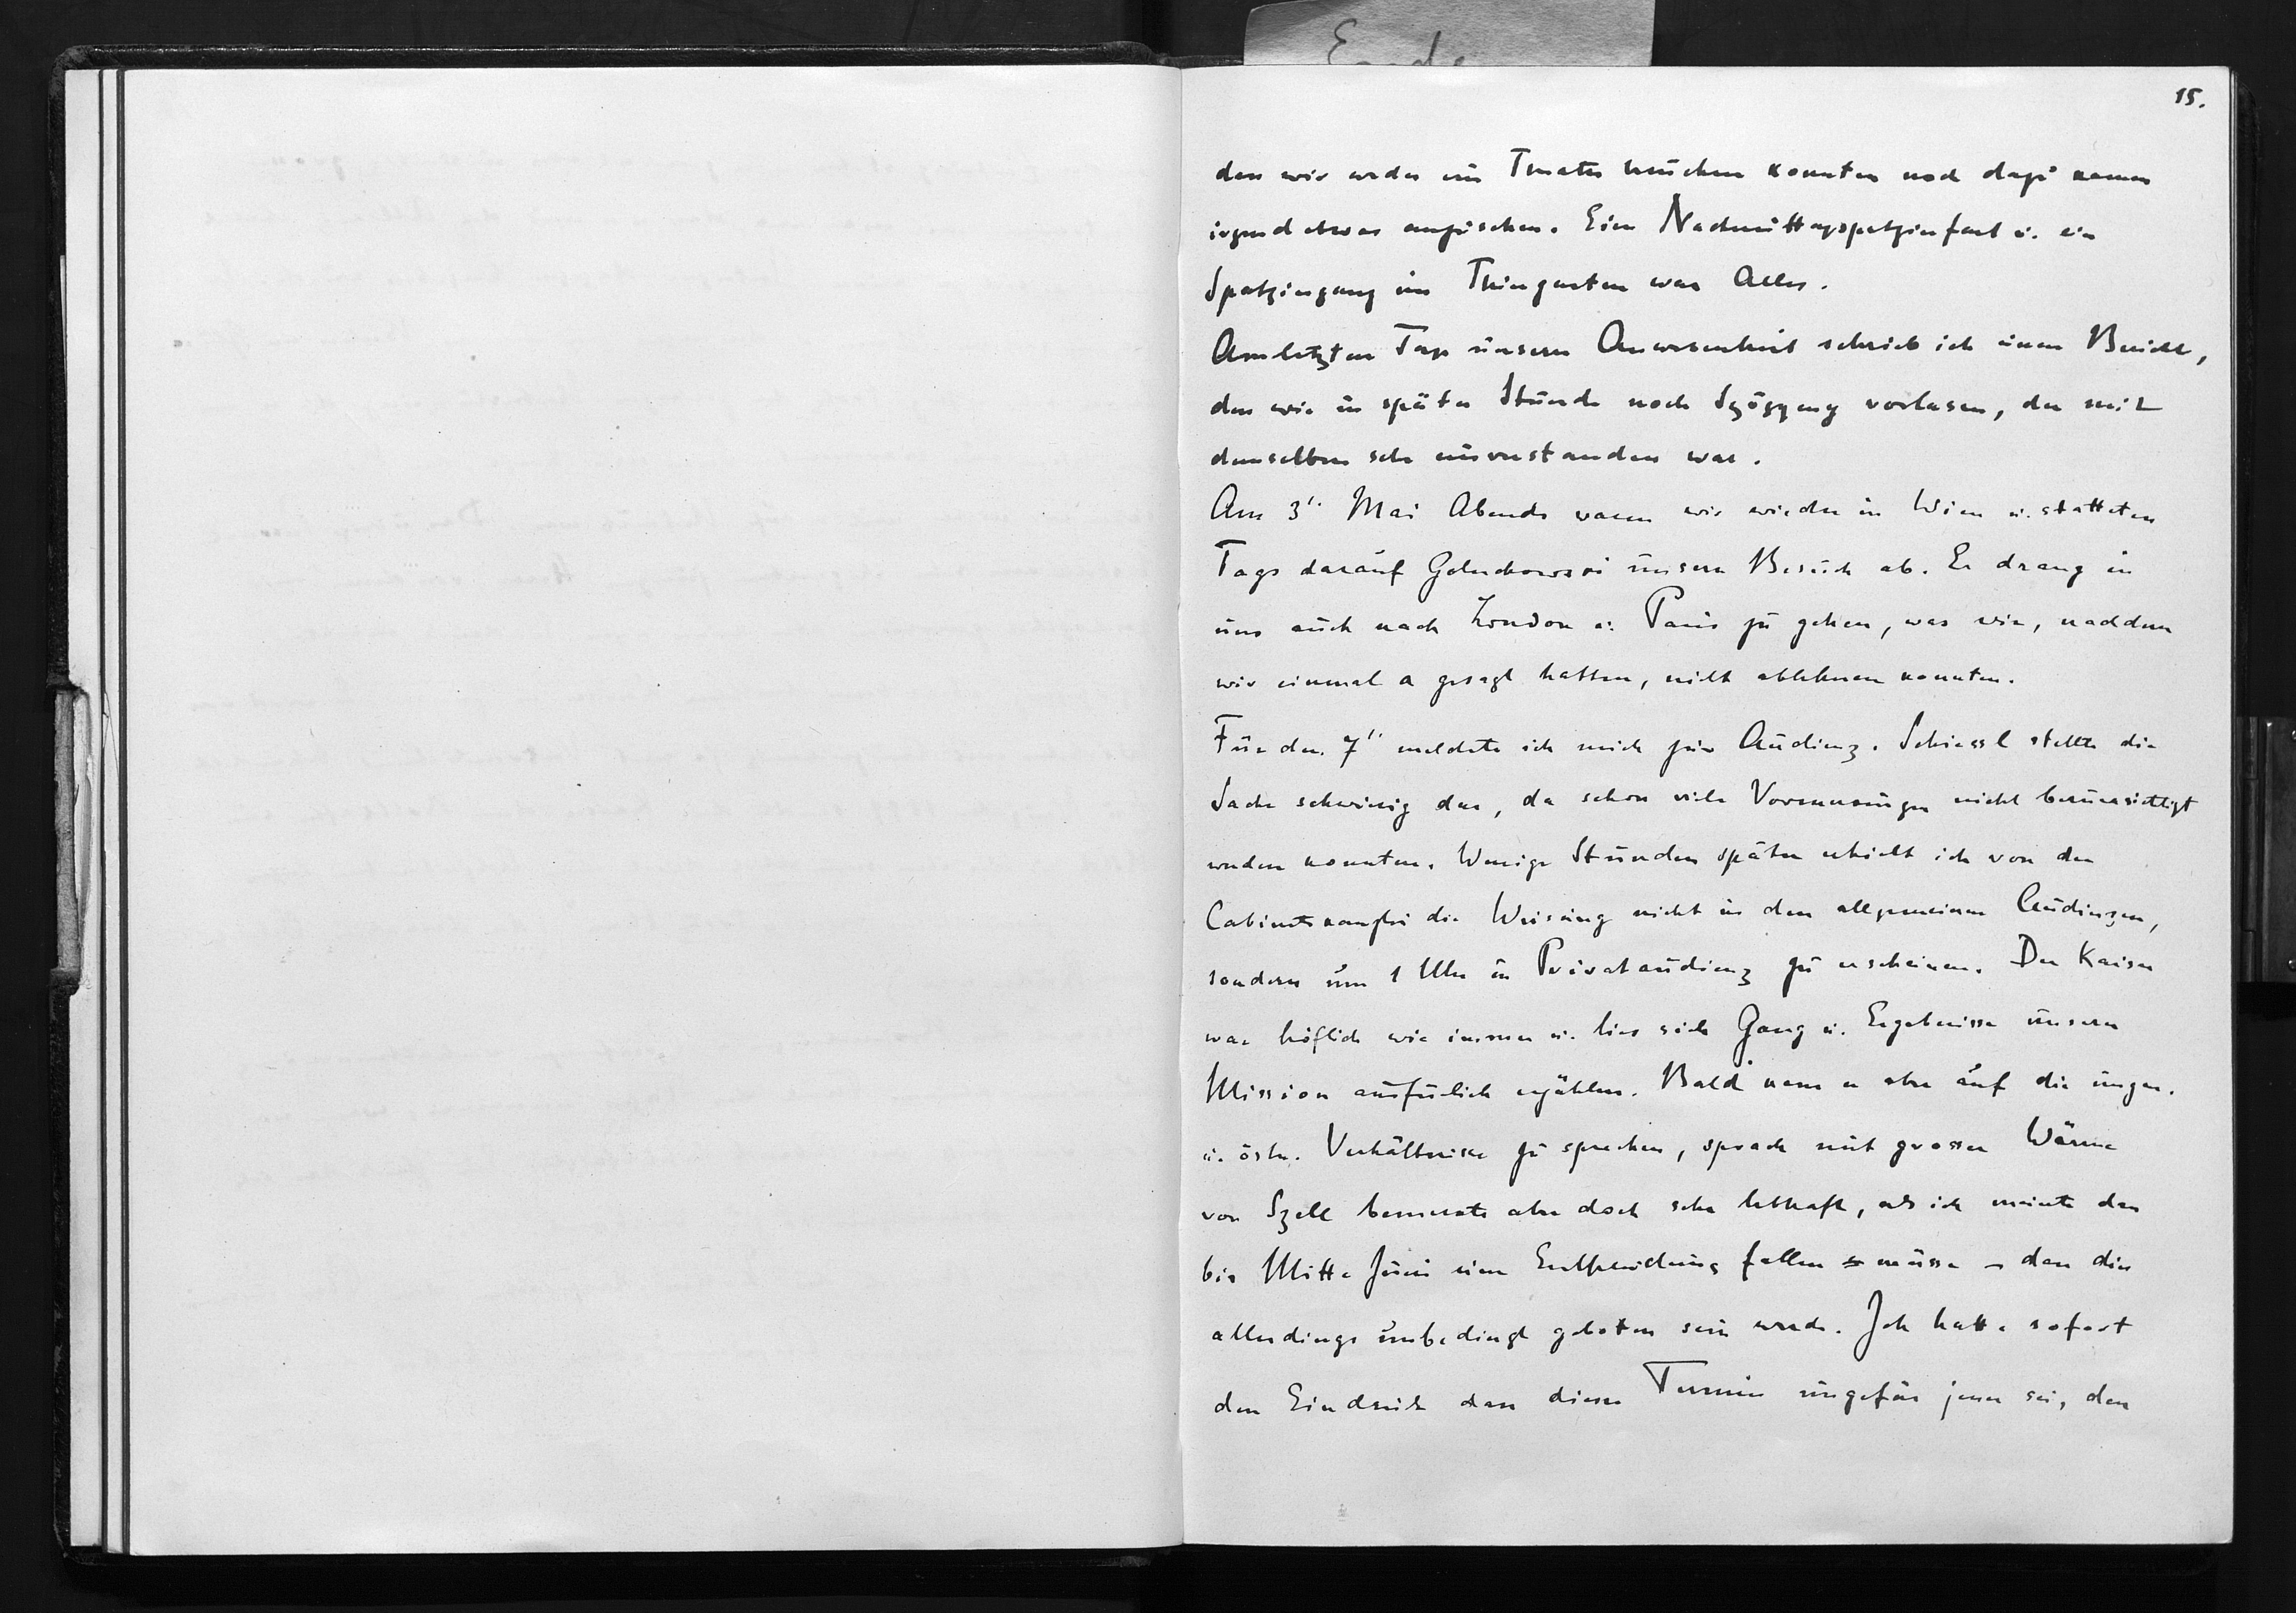 Ende
15.
dass wir weder ein Theater besuchen konnten noch dazu kamen
irgend etwas anzusehen. Eine Nachmittagspatzierfart u. ein
Spatziergang im Thiergarten war Alles.
Am letzten Tage unserer Anwesenheit schrieb ich einen Bericht,
den wir in später Stunde noch Szögyeny vorlasen, der mit
demselben sehr einverstanden war.
Am 3t. Mai Abends waren wir wieder in Wien u. statteten
Tags darauf Goluchowski unsern Besuch ab. Er drang in
uns auch nach London u. Paris zu gehen, was wir, nachdem
wir einmal a gesagt hatten, nicht ablehnen konnten.
Für den 7t meldete ich mich zur Audienz. Schiessl stellte die
Sache schwierig dar, da schon viele Vormerkungen nicht berücksichtigt
werden konnten. Wenige Stunden später erhielt ich von der
Cabinetskanzlei die Weisung nicht in den allgemeinen Audienzen,
sondern um 1 Uhr in Privataudienz zu erscheinen. Der Kaiser
war höflich wie immer u. lies sich Gang u. Ergebnisse unserer
Mission ausfürlich erzählen. Bald kam er aber auf die ungar.
u. östr. Verhältnisse zu sprechen, sprach mit grosser Wärme
von Szell bemerkte aber doch sehr lebhaft, als ich meinte dass
bis Mitte Juni eine Entscheidung fallen müsse – dass dies
allerdings unbedingt geboten sein werde. Ich hatte sofort
den Eindruck dass dieser Termin ungefär jener sei, den